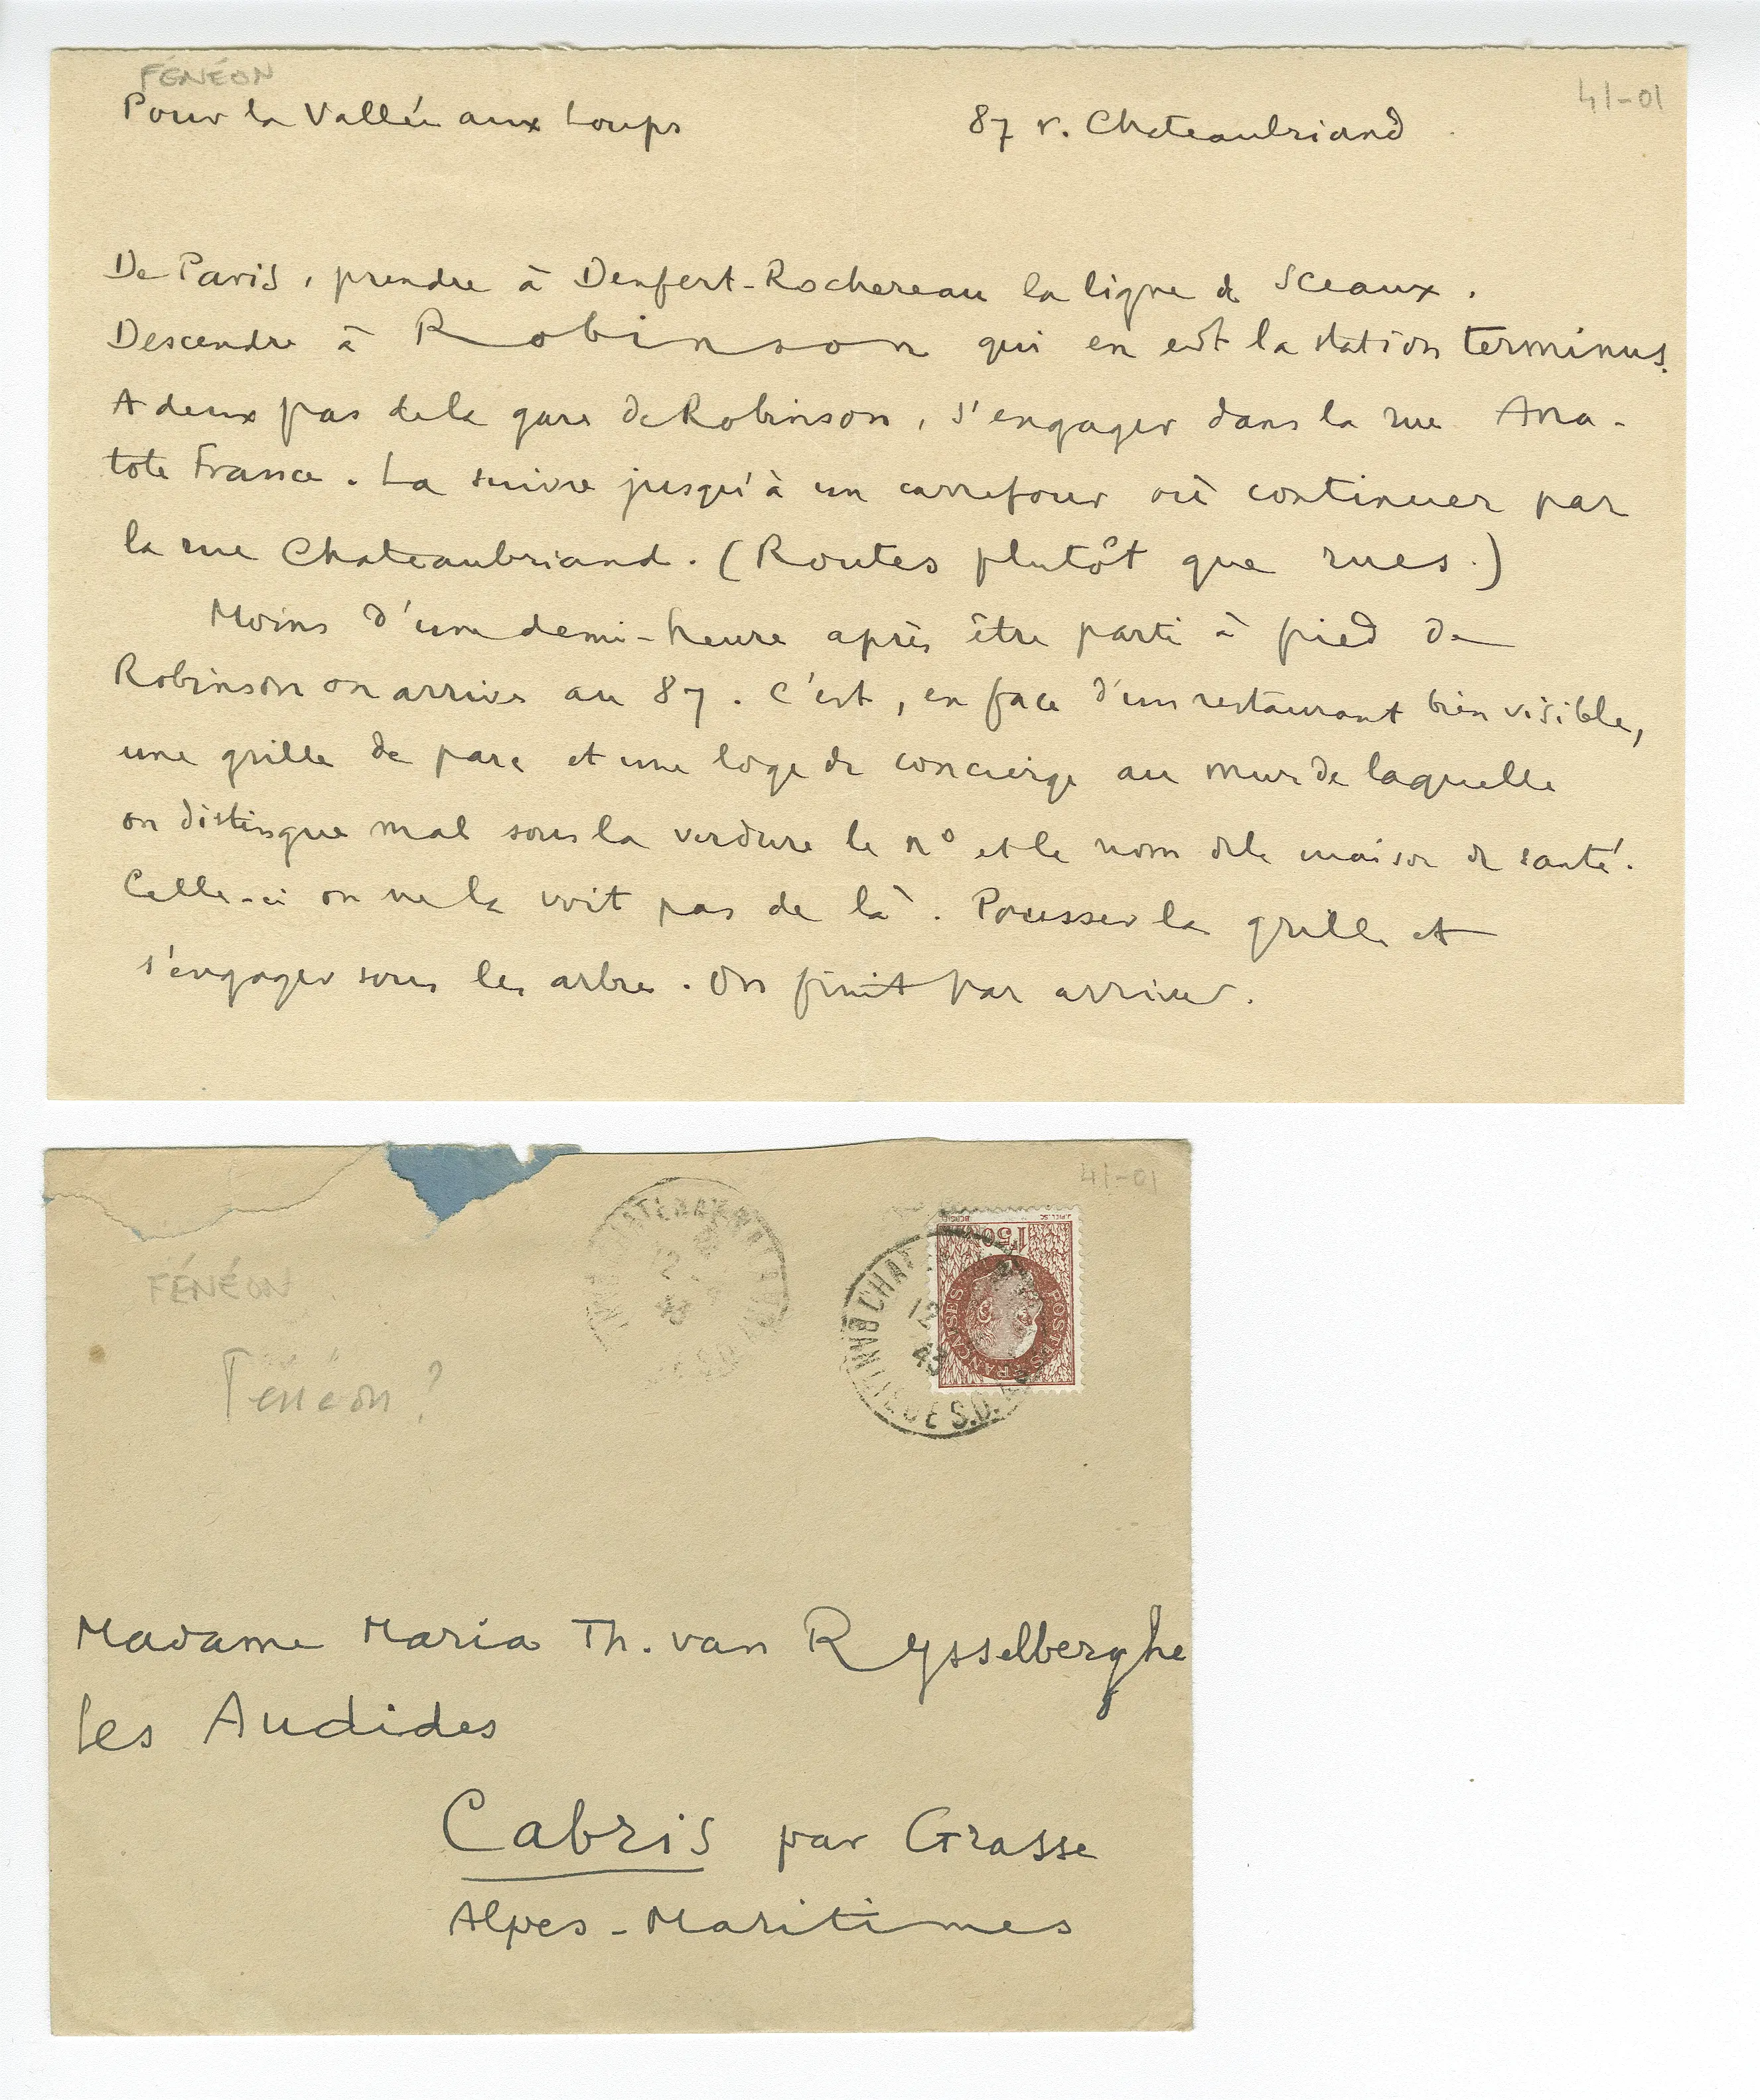 FÉNÉON
41-01
Pour la Vallée aux Loups
87 r. Chateaubriand
De Paris, prendre à Denfert-Rochereau la ligne de Sceaux.
Descendre à Robinson qui en est la station terminus.
A deux pas de la gare de Robinson, s'engager dans la rue Ana-
tole France. La suivre jusqu'à un carrefour où continuer par
la rue Chateaubriand. (Routes plutôt que rues.)
Moins d'une demi-heure après être parti à pied de
Robinson on arrive au 87. C'est, en face d'un restaurant bien visible,
une grille de parc et une loge de concierge au mur de laquelle
on distingue mal sous la verdure le n° et le nom de la maison de santé.
Celle-ci on ne la voit pas de là. Pousser la grille et
s'engager sous les arbres. On finit par arriver.
41-01
FÉNÉON
Fénéon?
12
43
CHAT
12
43
E S.D.
1F50
POSTES FRANÇAISES
Madame Maria Th. van Rysselberghe
les Audides
Cabris par Grasse
Alpes-Maritimes